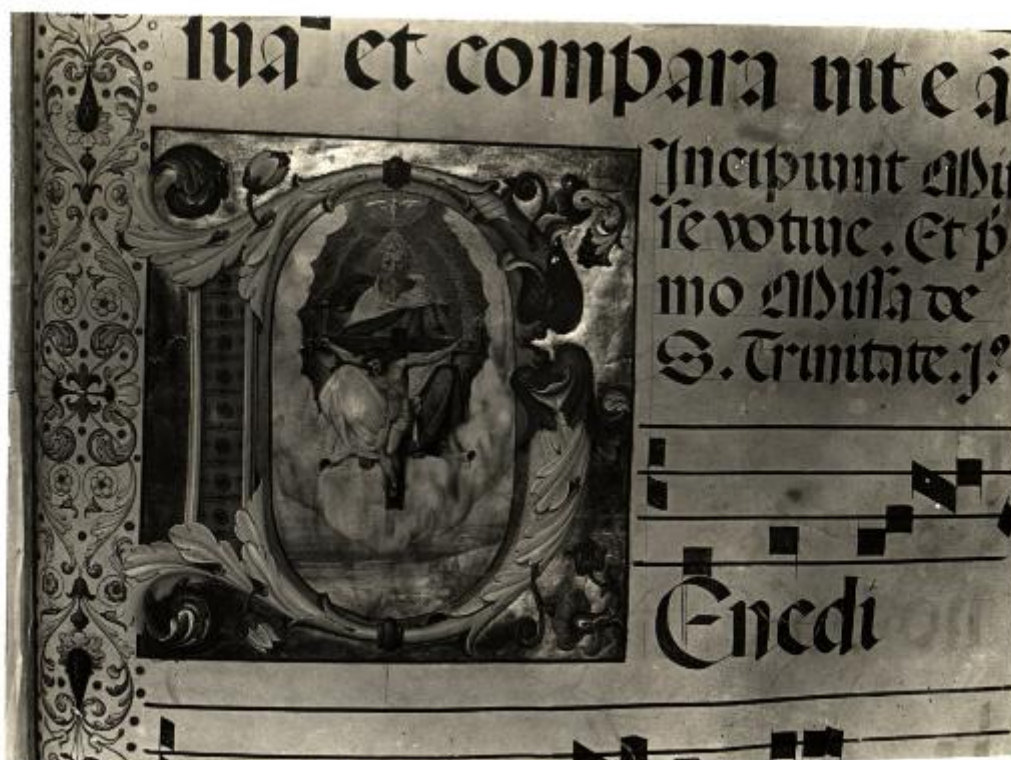 et compara uit e
Incipiunt Mis
se votiue. Et p̃
mo Missa de
S. Trinitate. J.
B
Enedi